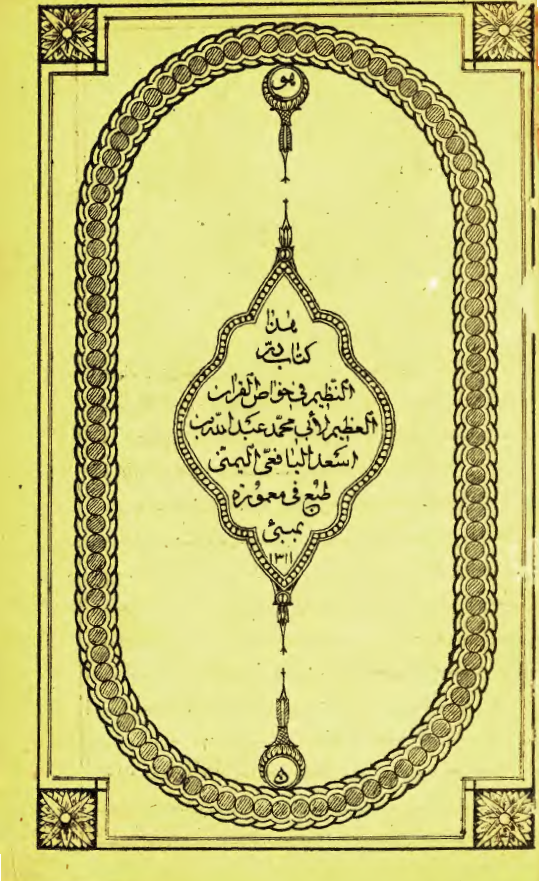 هو
هذا
كتاب در
النظيم في خواص القران
العظيم لأبي محمد عبد الله بن
اسعد اليافعي اليمني
طبع في معموره
بمبئ
١٣١١